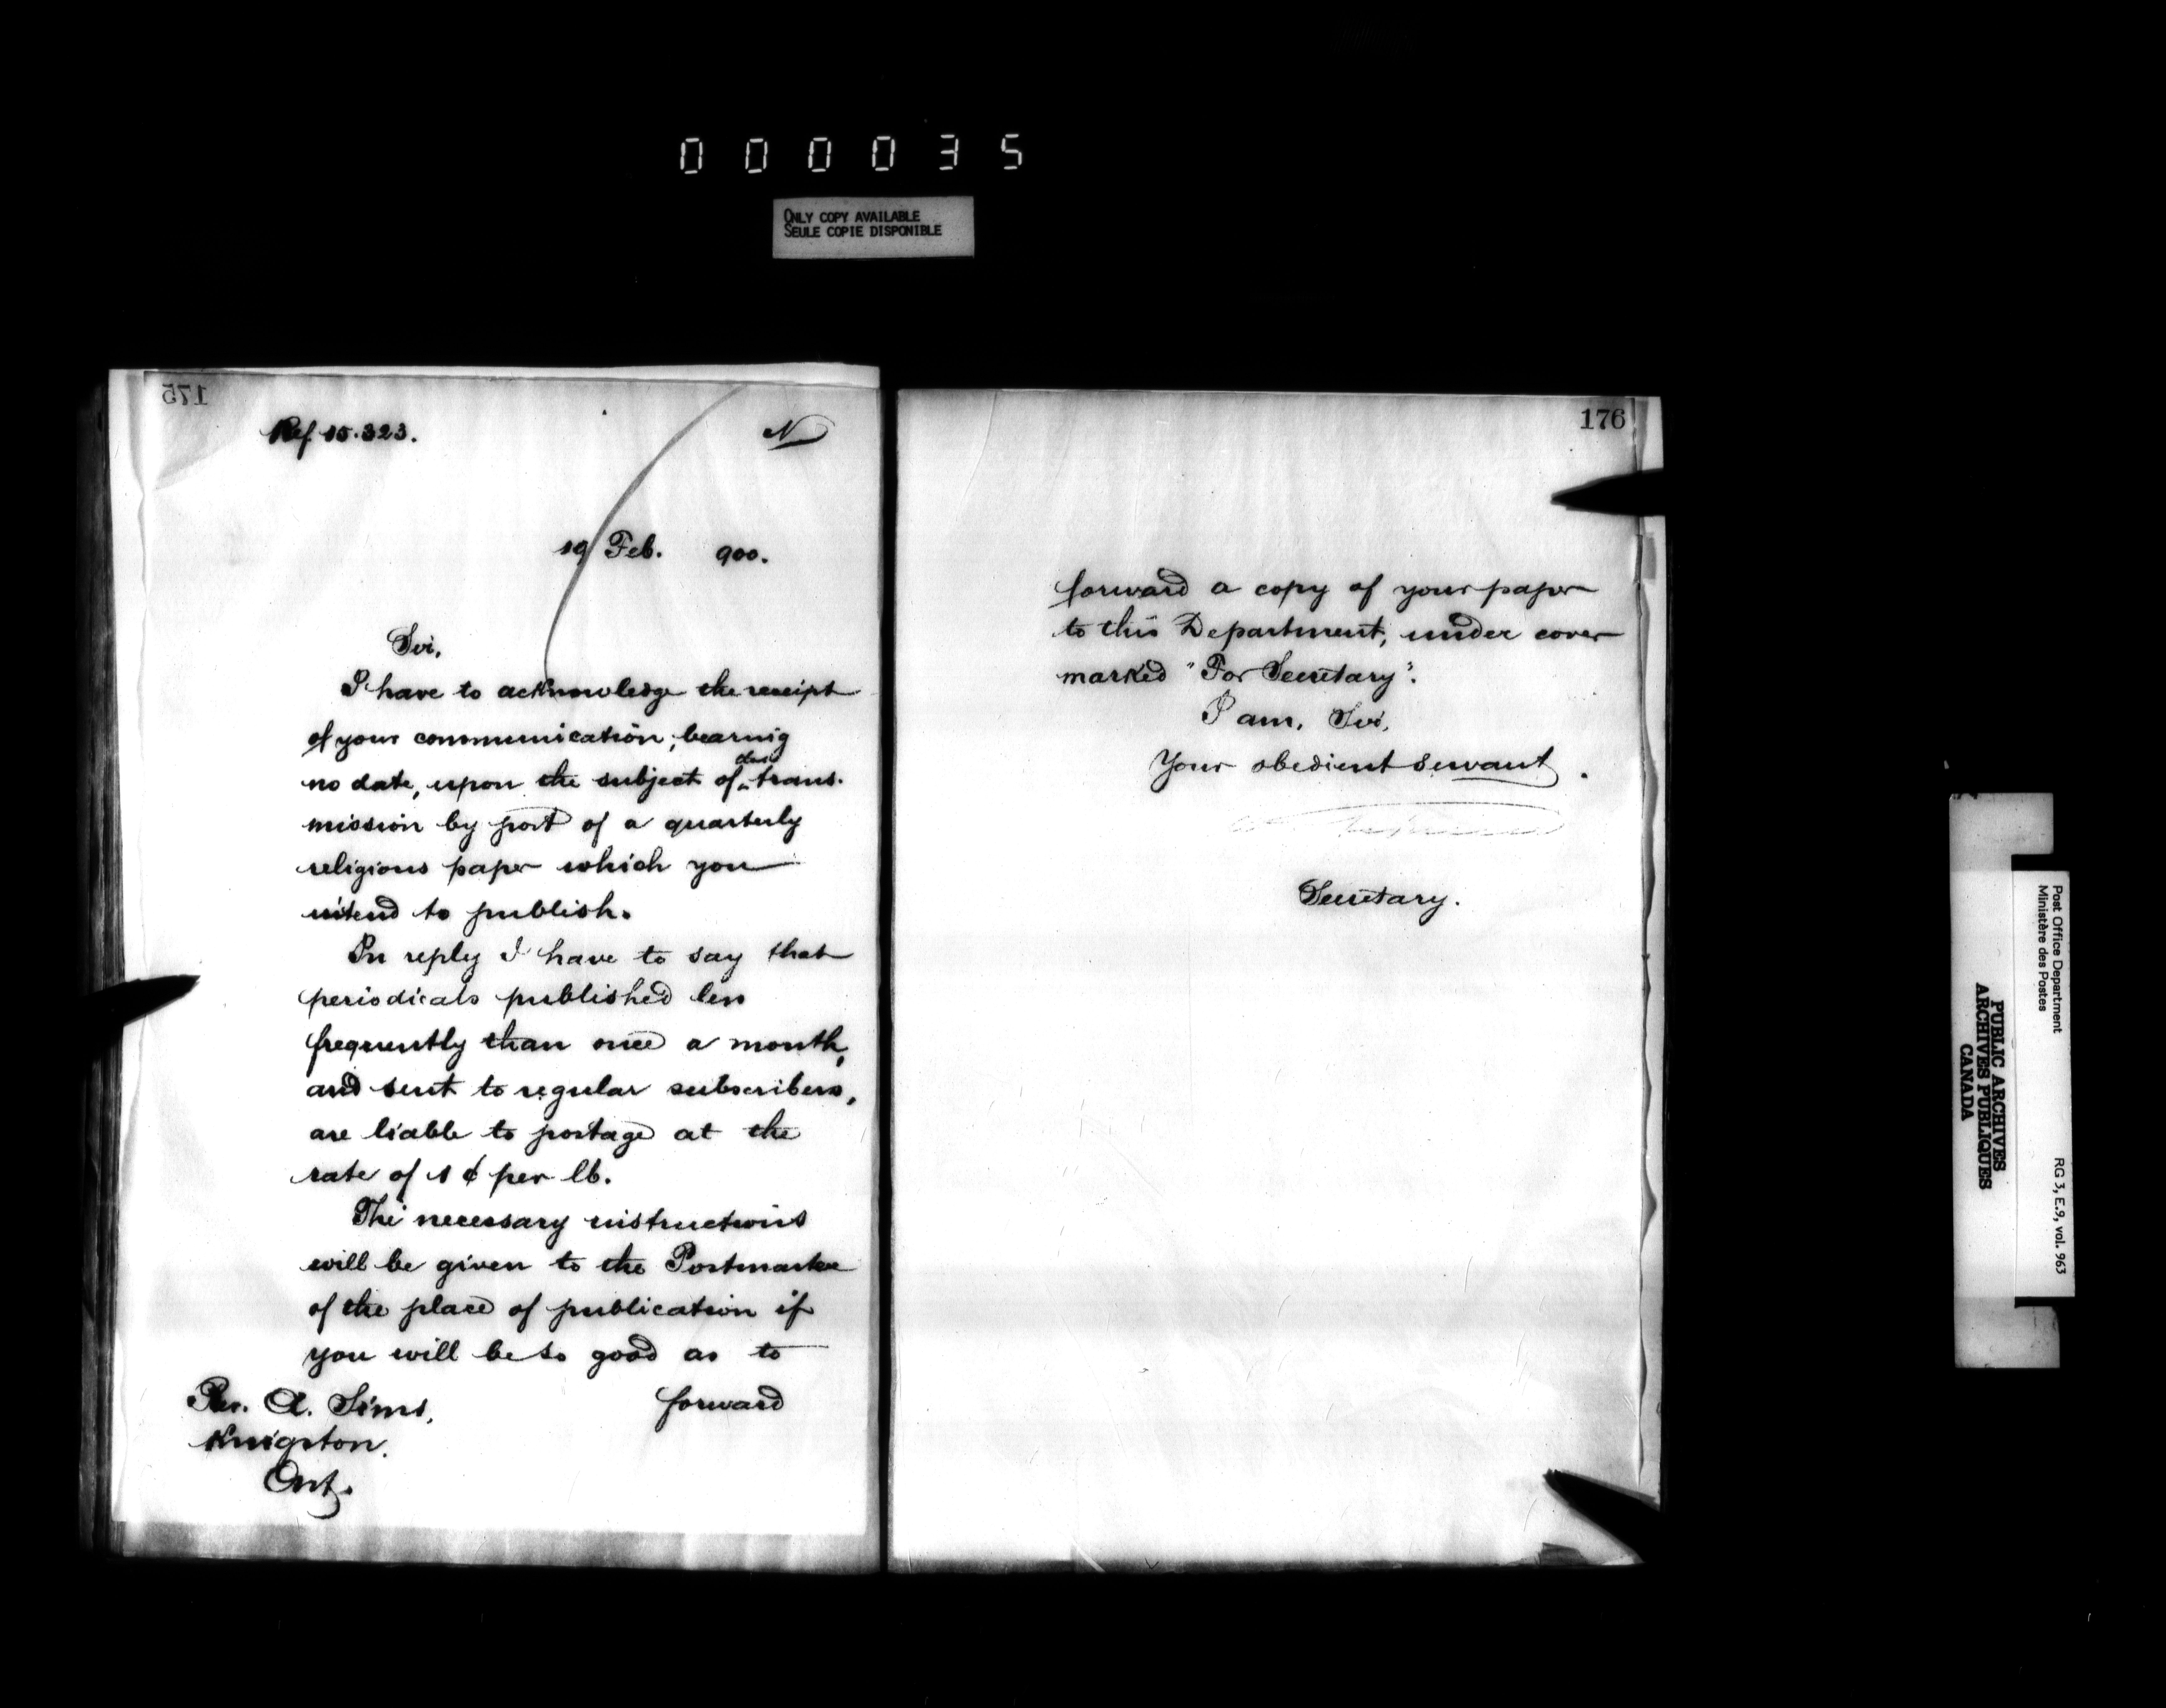 000035
ONLY COPY AVAILABLE
SEULE COPIE DISPONIBLE
175
Ref. 15.323.
N
19 Feb. 900.
Sir,
I have to acknowledge the receipt
of your communication, bearing
no date, upon the subject of the trans-
mission by post of a quarterly
religious paper which you
intend to publish.
In reply I have to say that
periodicals published less
frequently than once a month,
and sent to regular subscribers,
are liable to postage at the
rate of 1 ¢ per lb.
The necessary instructions
will be given to the Postmaster
of the place of publication if
you will be so good as to
forward
Rev. A. Sims,
Kingston.
Ont.
176
forward a copy of your paper
to this Department, under cover
marked "For Secretary".
I am, Sir,
Your obedient servant.
Secretary.
Post Office Department
Ministère des Postes
RG 3, E.9, vol. 963
PUBLIC ARCHIVES
ARCHIVES PUBLIQUES
CANADA